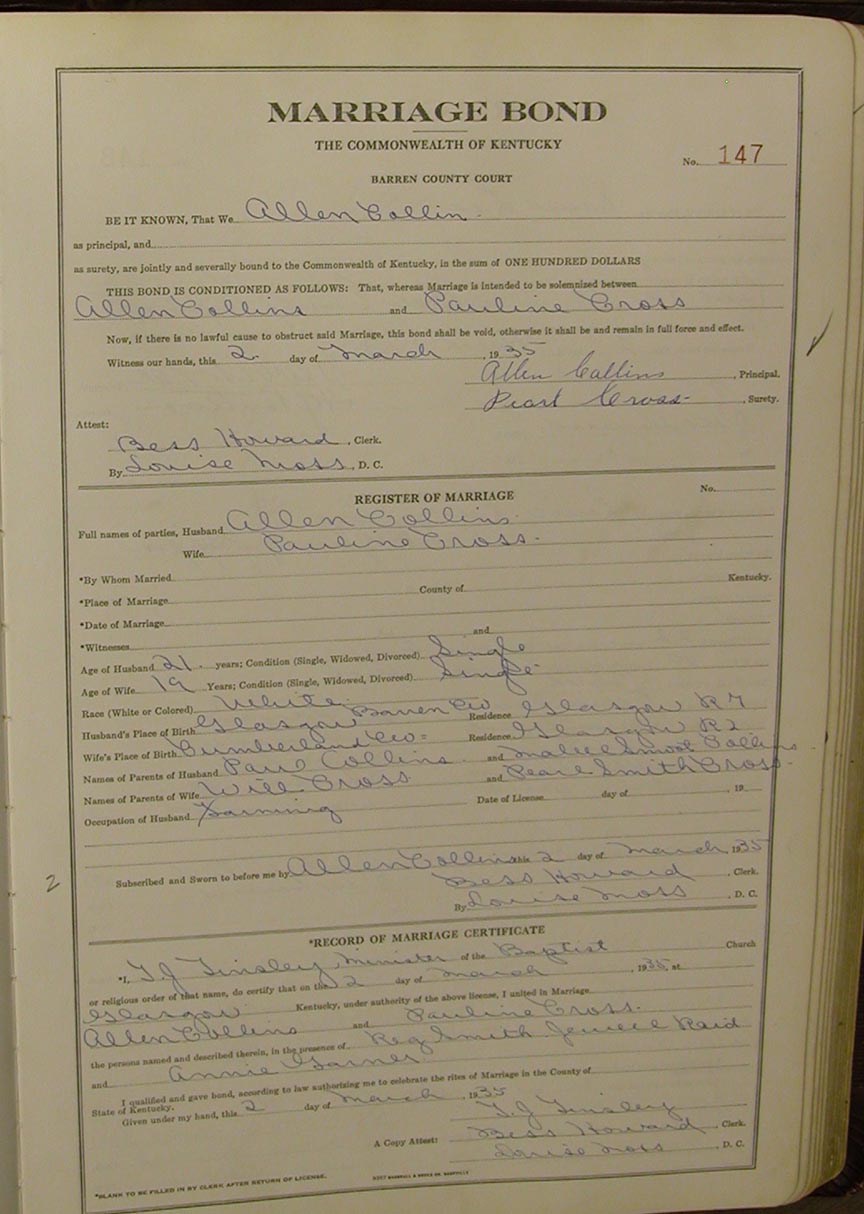 MARRIAGE BOND
THE COMMONWEALTH OF KENTUCKY
No. 147
BARREN COUNTY COURT
BE IT KNOWN, That We Allen Collin
as principal, and
as surety, are jointly and severally bound to the Commonwealth of Kentucky, in the sum of ONE HUNDRED DOLLARS
THIS BOND IS CONDITIONED AS FOLLOWS: That, whereas Marriage is intended to be solemnized between
Allen Collins and Pauline Cross
Now, if there is no lawful cause to obstruct said Marriage, this bond shall be void, otherwise it shall be and remain in full force and effect.
Witness our hands, this 2 day of March, 1935
Allen Collins, Principal.
Pearl Cross, Surety.
Attest:
Bess Howard, Clerk.
By Louise Moss, D. C.
REGISTER OF MARRIAGE No.
Full names of parties, Husband Allen Collins
Wife Pauline Cross.
*By Whom Married
*Place of Marriage County of Kentucky.
*Date of Marriage
*Witnesses and
Age of Husband 21. years; Condition (Single, Widowed, Divorced) Single
Age of Wife 19 Years; Condition (Single, Widowed, Divorced) Single
Race (White or Colored) White
Husband's Place of Birth Glasgow Barren Co Residence Glasgow R 7
Wife's Place of Birth Cumberland Co= Residence Glasgow R2
Names of Parents of Husband Paul Collins and Smoot Collins
Names of Parents of Wife Will Cross and Pearl Smith Cross
Occupation of Husband Farming Date of License day of , 19
Subscribed and Sworn to before me by Allen Collins this 2 day of March, 1935
2
Bess Howard, Clerk.
By Louise Moss, D. C.
*RECORD OF MARRIAGE CERTIFICATE
*I, T J Tinsley, Minister of the Baptist Church
or religious order of that name, do certify that on the 2 day of March, 1935, at
Glasgow Kentucky, under authority of the above license, I united in Marriage
Allen Collins and Pauline Cross.
the persons named and described therein, in the presence of Reg Smith Jewell Raid
and Annie Garner
I qualified and gave bond, according to law authorizing me to celebrate the rites of Marriage in the County of
State of Kentucky.
Given under my hand, this 2 day of March, 1935
T. J Tinsley
A Copy Attest: Bess Howard, Clerk.
Louise Moss, D. C.
*BLANK TO BE FILLED IN BY CLERK AFTER RETURN OF LICENSE.